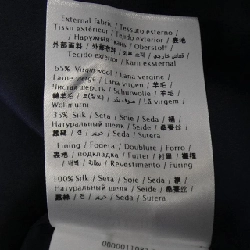 External fabric / Tessuto esterno /
Tissu extérieur / Tejido exterior / 表地
/ Наружный / Oberstoff /
外部面料 / 外部面料 /
Tecido exterior / Kain external
65% Virgin wool / Lana vergine /
Laine vierge / Lana virgen / 羊毛 /
Чистая шерсть / Schurwolle / 羊毛
/ 羊毛 / Lã virgem /
Wol murni
35% Silk / Seta / Soie / Seda / 絹 /
Натуральный шелк / Seide / 桑蚕丝 /
蠶絲 / / Seda / Sutera
Lining / Fodera / Doublure / Forro /
/ подкладка / Futter / 衬里 /
裡襯 / / Forro /
100% Silk / Seta / Soie / Seda / 絹 /
Натуральный шелк / Seide / 桑蚕丝 /
蠶絲 / / Seda / Sutera